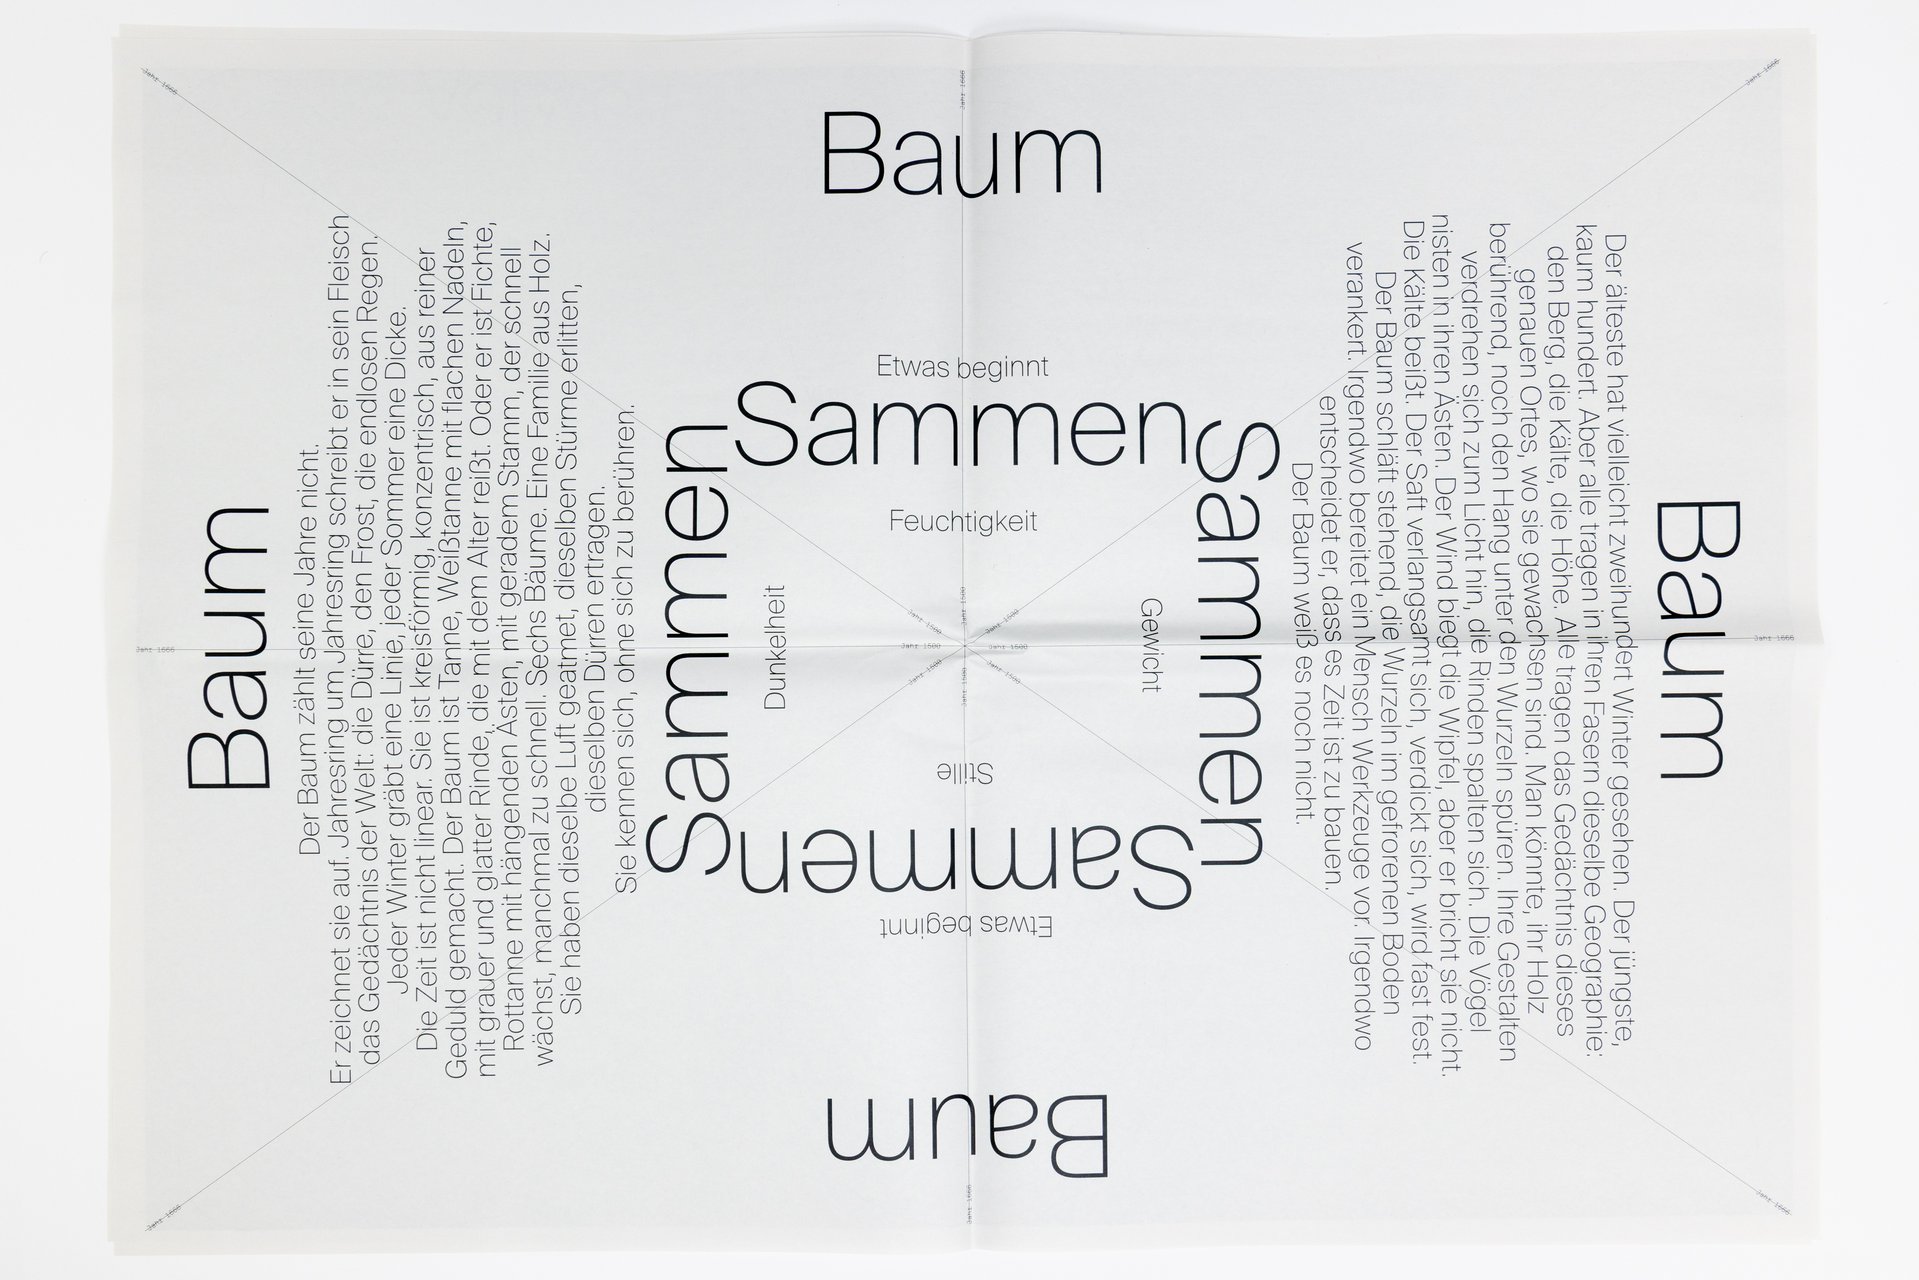 Jahr 1666
Jahr 1666
Jahr 1666
Baum
Etwas beginnt
Sammen
Feuchtigkeit
Baum
Der Baum zählt seine Jahre nicht.
Er zeichnet sie auf. Jahresring um Jahresring schreibt er in sein Fleisch
das Gedächtnis der Welt: die Dürre, den Frost, die endlosen Regen.
Jeder Winter gräbt eine Linie, jeder Sommer eine Dicke.
Die Zeit ist nicht linear. Sie ist kreisförmig, konzentrisch, aus reiner
Geduld gemacht. Der Baum ist Tanne, Weißtanne mit flachen Nadeln,
mit grauer und glatter Rinde, die mit dem Alter reißt. Oder er ist Fichte,
Rottanne mit hängenden Ästen, mit geradem Stamm, der schnell
wächst, manchmal zu schnell. Sechs Bäume. Eine Familie aus Holz.
Sie haben dieselbe Luft geatmet, dieselben Stürme erlitten,
dieselben Dürren ertragen.
Sie kennen sich, ohne sich zu berühren.
Sammen
Dunkelheit
Jahr 1500
Jahr 1500
Jahr 1500
Jahr 1500
Jahr 1500
Jahr 1500
Jahr 1500
Jahr 1500
Gewicht
Sammen
Baum
Der älteste hat vielleicht zweihundert Winter gesehen. Der jüngste,
kaum hundert. Aber alle tragen in ihren Fasern dieselbe Geographie:
den Berg, die Kälte, die Höhe. Alle tragen das Gedächtnis dieses
genauen Ortes, wo sie gewachsen sind. Man könnte, ihr Holz
berührend, noch den Hang unter den Wurzeln spüren. Ihre Gestalten
verdrehen sich zum Licht hin, die Rinden spalten sich. Die Vögel
nisten in ihren Ästen. Der Wind biegt die Wipfel, aber er bricht sie nicht.
Die Kälte beißt. Der Saft verlangsamt sich, verdickt sich, wird fast fest.
Der Baum schläft stehend, die Wurzeln im gefrorenen Boden
verankert. Irgendwo bereitet ein Mensch Werkzeuge vor. Irgendwo
entscheidet er, dass es Zeit ist zu bauen.
Der Baum weiß es noch nicht.
Jahr 1666
Jahr 1666
Stille
Sammen
Etwas beginnt
Baum
Jahr 1666
Jahr 1666
Jahr 1666